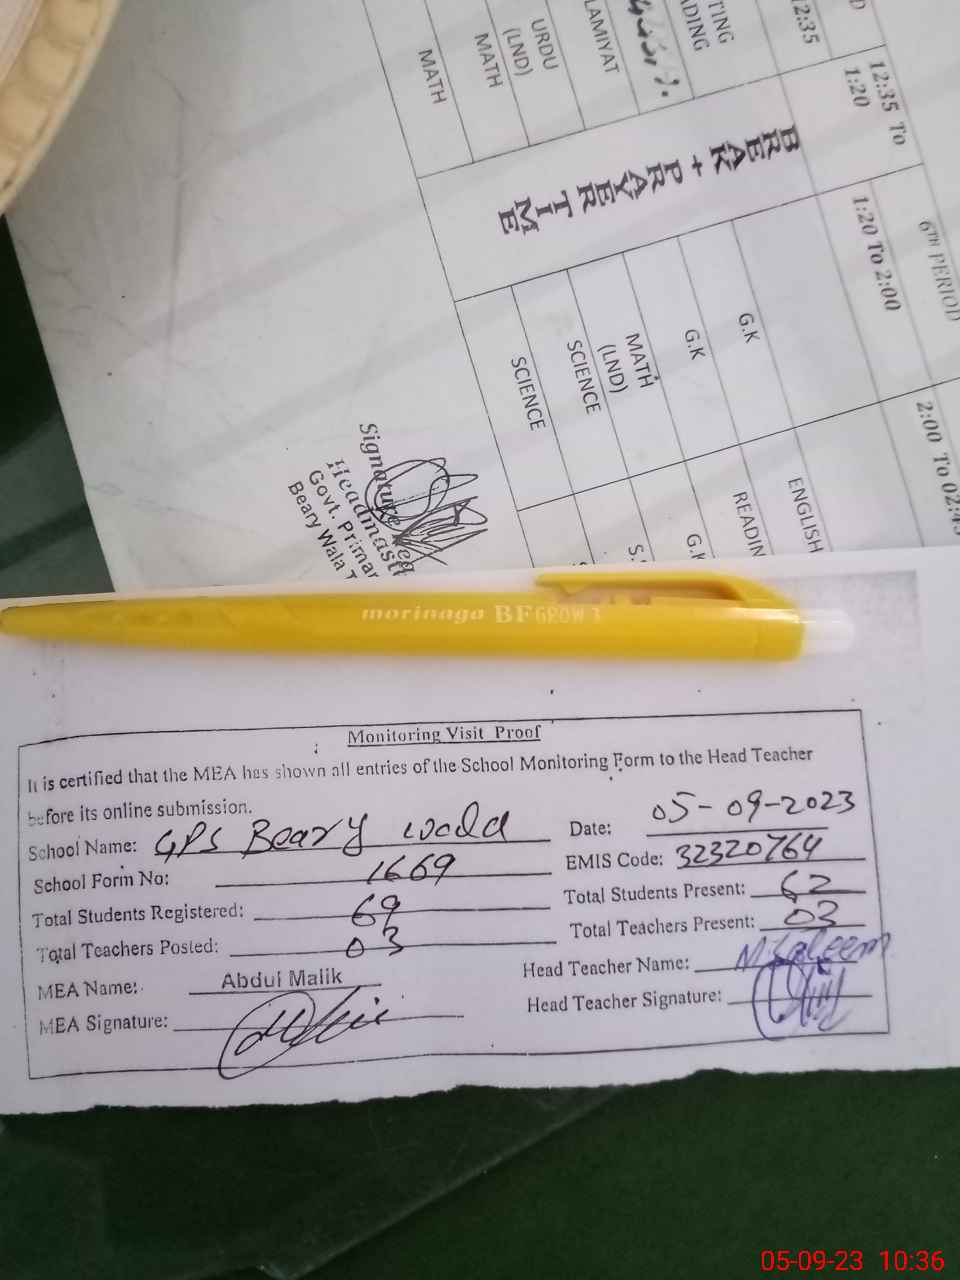 D
12:35
TING
DING
LAMIYAT
URDU
(LND)
MATH
MATH
12:35 To
1:20
BREAK + PRAYER TIME
6TH PERIOD
1:20 To 2:00
G.K
G.K
MATH
(LND)
SCIENCE
SCIENCE
2:00 To 02:45
ENGLISH
READIN
G.K
S.
Signature
Headmast
Govt. Primar
Beary Wala T
morinaga BF GROW 3
Monitoring Visit Proof
It is certified that the MEA has shown all entries of the School Monitoring Form to the Head Teacher
before its online submission.
School Name: GPS Beary wala
Date: 05-09-2023
School Form No: 1669
EMIS Code: 32320764
Total Students Registered: 69
Total Students Present: 62
Total Teachers Posted: 03
Total Teachers Present: 03
MEA Name: Abdul Malik
Head Teacher Name: M Saleem
MEA Signature:
Head Teacher Signature:
05-09-23 10:36